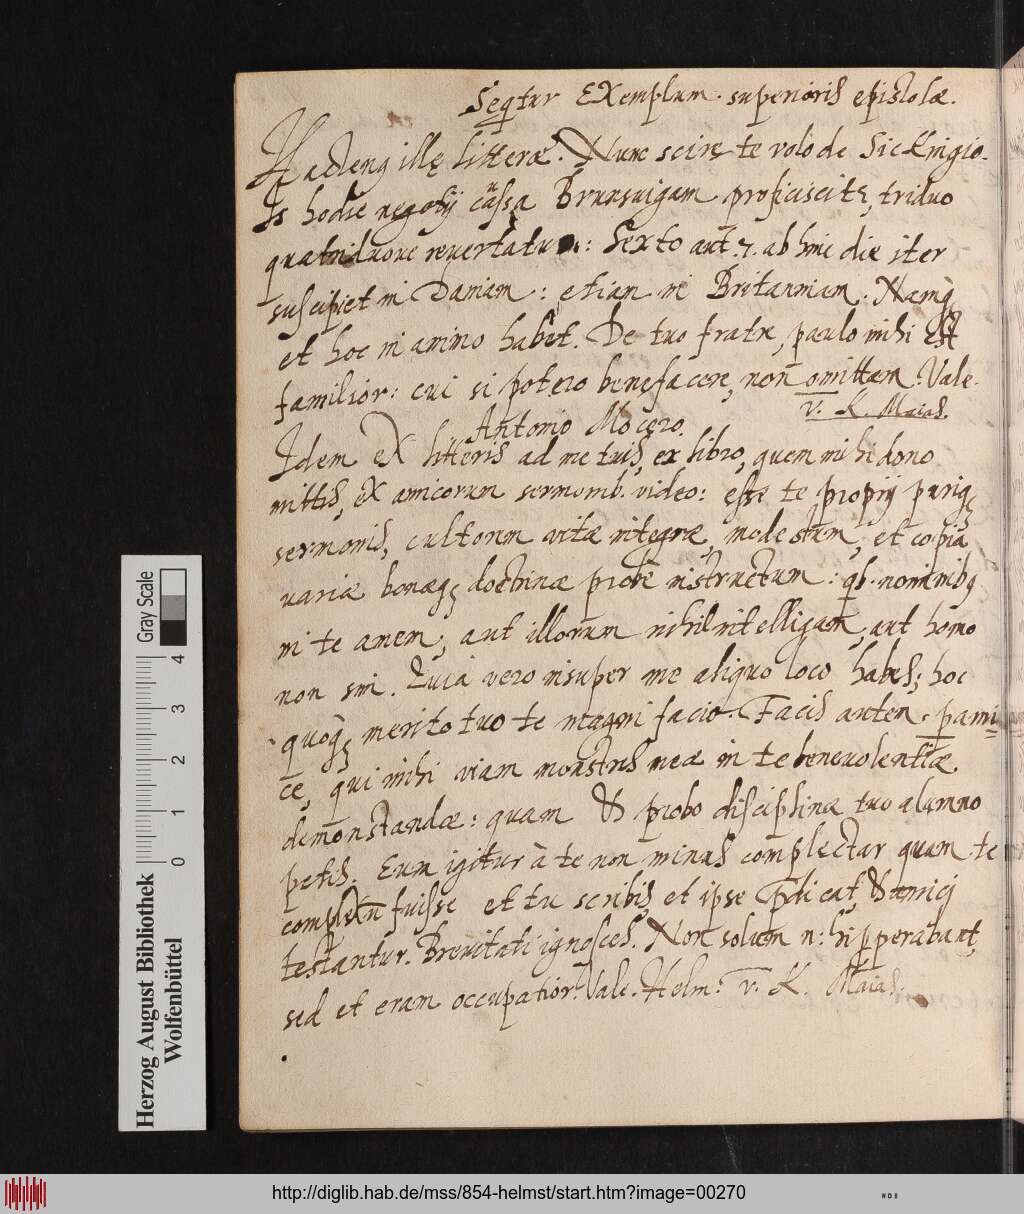 Seqtur Exemplum superioris epistolæ.
Hacteng illę litteræ. Nunc scire te volo de Sickingio.
Is hodie negotij caussa Brunsuigam proficiscitr, triduo
quatriduoue reuertatur: Sexto aut 7. ab hinc die iter
suscipiet in Daniam: etiam in Britanniam. Namq;
et hoc in animo habet. De tuo fratre, paulo mihi est
familior: cui si potero benefacere, non omittam. Vale.
V. K. Maias.
Antonio Mocero.
Idem ex litteris ad me tuis, ex libro, quem mihi dono
mittis, ex amicorum sermonib. video: esse te propij puriq;
sermonis, cultorem vitæ integræ, modestum, et copia
variæ bonæq; doctrinæ probe instructum: qb. nominibq
ni te amem, aut illorum nihil intelligam, aut homo
non sim. Quia vero insuper me aliquo loco habes; hoc
quoq; merito tuo te magni facio. Facis autem pami=
ce, qui mihi viam monstres meæ in te beneuolentiæ
demonstandæ: quam & probo disciplinæ tuo alumno
petis. Eum igitur à te non minus complectar quam te
complexū fuisse et tu scribis, et ipse pdicat, & amici
testantur. Breuitati ignosces. Non solum n: hi pperabunt,
sed et eram occupatior. Vale. Helm: V. K. Maias.
Herzog August Bibliothek
Wolfenbüttel
Gray Scale
0 1 2 3 4
http://diglib.hab.de/mss/854-helmst/start.htm?image=00270
WDB